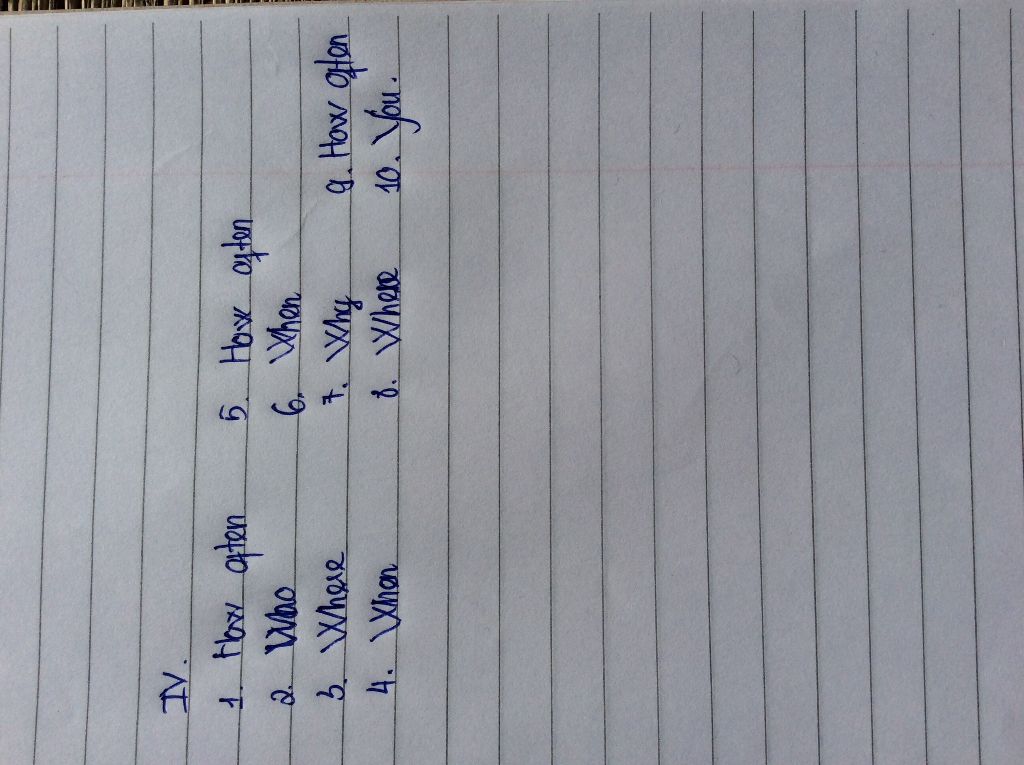 IV.
1. How often 5. How often
2. Who 6. When
3. Where 7. Why 9. How often
4. When 8. Where 10. You.